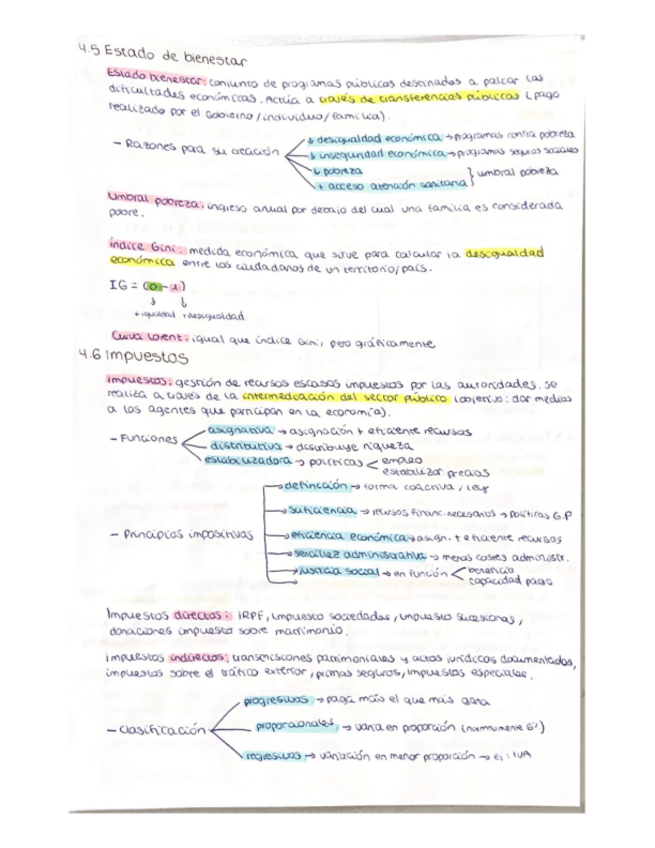 4.5 Estado de bienestar
Estado bienestar: conjunto de programas públicos destinados a paliar las
dificultades económicas. Actúa a través de transferencias públicas (pago
realizado por el Gobierno/individuo/familia).
- Razones para su creación
↓ desigualdad económica → programas contra pobreza
↓ inseguridad económica → programas seguros sociales
↓ pobreza
+ acceso atención sanitaria } umbral pobreza
Umbral pobreza: ingreso anual por debajo del cual una familia es considerada
pobre.
Índice Gini: medida económica que sirve para calcular la desigualdad
económica entre los ciudadanos de un territorio/país.
IG = (0-1)
+ igualdad + desigualdad
Curva Lorent: igual que índice Gini, pero gráficamente
4.6 Impuestos
Impuestos: gestión de recursos escasos impuestos por las autoridades. Se
realiza a través de la intermediación del sector público (objetivo: dar medios
a los agentes que participan en la economía).
- Funciones
asignativa → asignación + eficiente recursos
distributiva → distribuye riqueza
estabilizadora → políticas < empleo
estabilizar precios
- Principios impositivos
definición → forma coactiva, ley
suficiencia → recursos financ. necesarios → políticas G.P
eficiencia económica → asign. + eficiente recursos
sencillez administrativa → menos costes administr.
justicia social → en función < beneficio
capacidad pago
Impuestos directos: IRPF, impuesto sociedades, impuesto sucesiones,
donaciones impuesto sobre matrimonio.
Impuestos indirectos: transmisiones patrimoniales y actos jurídicos documentados,
impuestos sobre el tráfico exterior, primas seguros, impuestos especiales.
- Clasificación
progresivos → paga más el que más gana
proporcionales → varía en proporción
regresivos → variación en menor proporción → ej: IVA